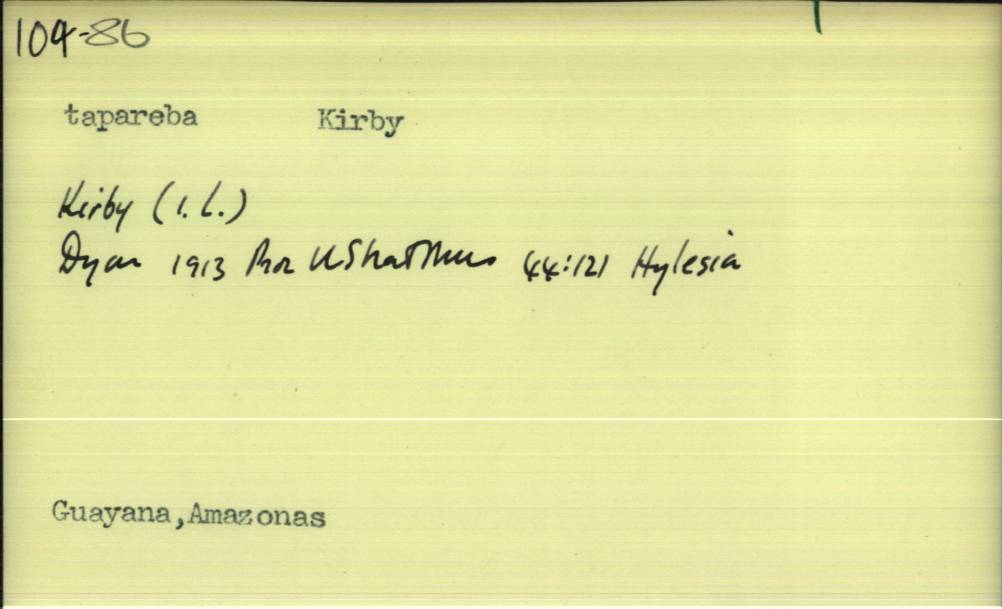 104-86
tapareba Kirby
Kirby (i.l.)
Dyar 1913 Proc USNatMus 44:121 Hylesia
Guayana,Amazonas